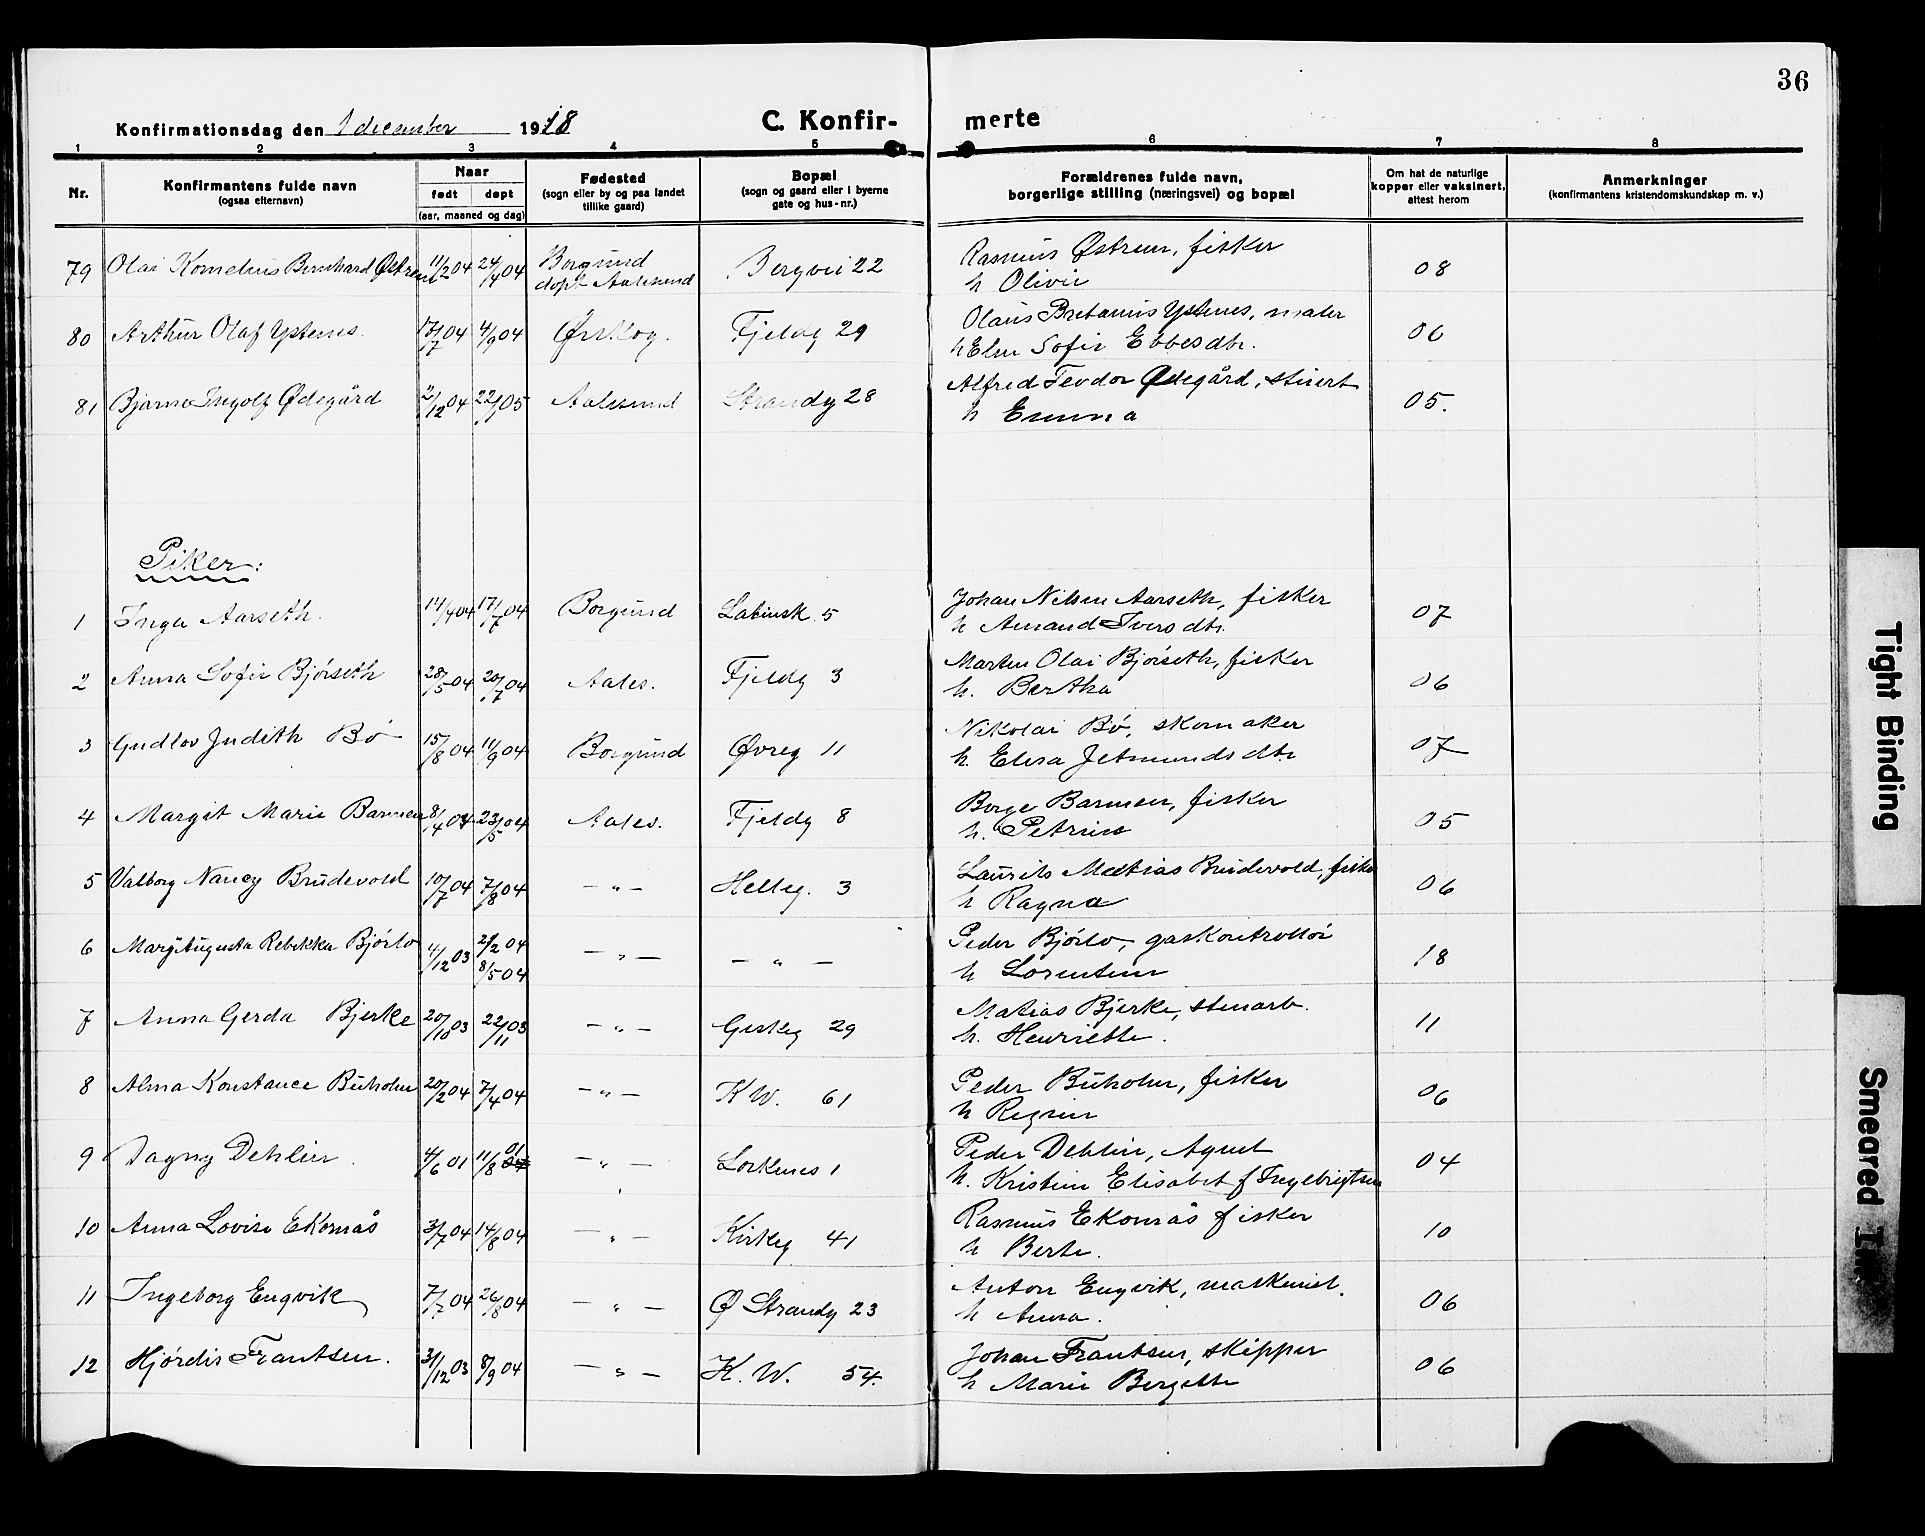 36
Konfirmationsdag den 1 december 1918
C. Konfirmerte
1 2 3 4 5 6 7 8
Nr.
Konfirmantens fulde navn
(ogsaa efternavn)
Naar
født døpt
(aar, maaned og dag)
Fødested
(sogn eller by og paa landet
tillike gaard)
Bopæl
(sogn og gaard eller i byerne
gate og hus-nr.)
Forældrenes fulde navn,
borgerlige stilling (næringsvei) og bopæl
Om hat de naturlige
kopper eller vaksinert,
attest herom
Anmerkninger
(konfirmantens kristendomskundskap m. v.)
79 Olai Kornelius Bernhard Østrem 11/2 04 24/4 04 Borgund Bergvei 22 Rasmus Østrem, fisker 08
døpt Aalesund h Olivie
80 Arthur Olaf Ystenes. 17/7 04 4/9 04 Ørskog. Fjeldg 29 Olaus Bretanius Ystenes, maler 06
h Eline Sofie Ebbesdtr.
81 Bjarne Ingolf Ødegård 2/12 04 22/1 05 Aalesund Strandg 28 Alfred Teodor Ødegård, stuert 05.
h Emma
Piker:
1 Inga Aarseth. 14/4 04 17/7 04 Borgund 5 Johan Nilsen Aarseth, fisker 07
h Iversdtr.
2 Anna Sofie Bjørseth 28/5 04 20/7 04 Aales. Fjeldg 3 Marten Olai Bjørseth, fisker 06
h. Bertha
3 Gudlov Judith Bø 15/8 04 11/9 04 Borgund Øvreg 11 Nikolai Bø, skomaker 07
h. Elisa Jetmundsdtr
4 Margit Marie Barmen 8/4 04 23/5 04 Aales. Fjeldg 8 Borge Barmen, fisker 05
h. Petrine
5 Valborg Nancy Brudevold 10/7 04 7/8 04 — „ — Helleg. 3 Laurits Matias Brudevold, fisker 06
h Ragna
6 Margit Augusta Rebekka Bjørlo 4/12 03 2/2 04 — „ — — „ — Peder Bjørlo, gaskontrollør 18
8/5 04 h Lorentine
7 Anna Gerda Bjerke 20/10 03 22/11 03 — „ — Giskeg 29 Matias Bjerke, stenarb. 11
h. Henriette.
8 Alma Konstance Buholm 20/2 04 7/4 04 — „ — K W. 61 Peder Buholm, fisker 06
h Regine
9 Dagny Dehlin. 4/6 01 11/8 01 — „ — Lorkenes 1 Peder Dehlin, Agent 04
h. Kristine Elisabet f Ingebrigtsen
10 Anna Lovise Ekornås 3/7 04 14/8 04 — „ — Kirkeg 41 Rasmus Ekornås fisker 10
h Berte.
11 Ingeborg Engvik 7/7 04 26/8 04 — „ — Ø Strandg 23 Anton Engvik, maskinist. 06
h Anna.
12 Hjørdis Frantsen. 31/12 03 8/9 04 — „ — K. W. 54. Johan Frantsen, skipper 06
h Marie Bergette
Tight Binding
Smeared